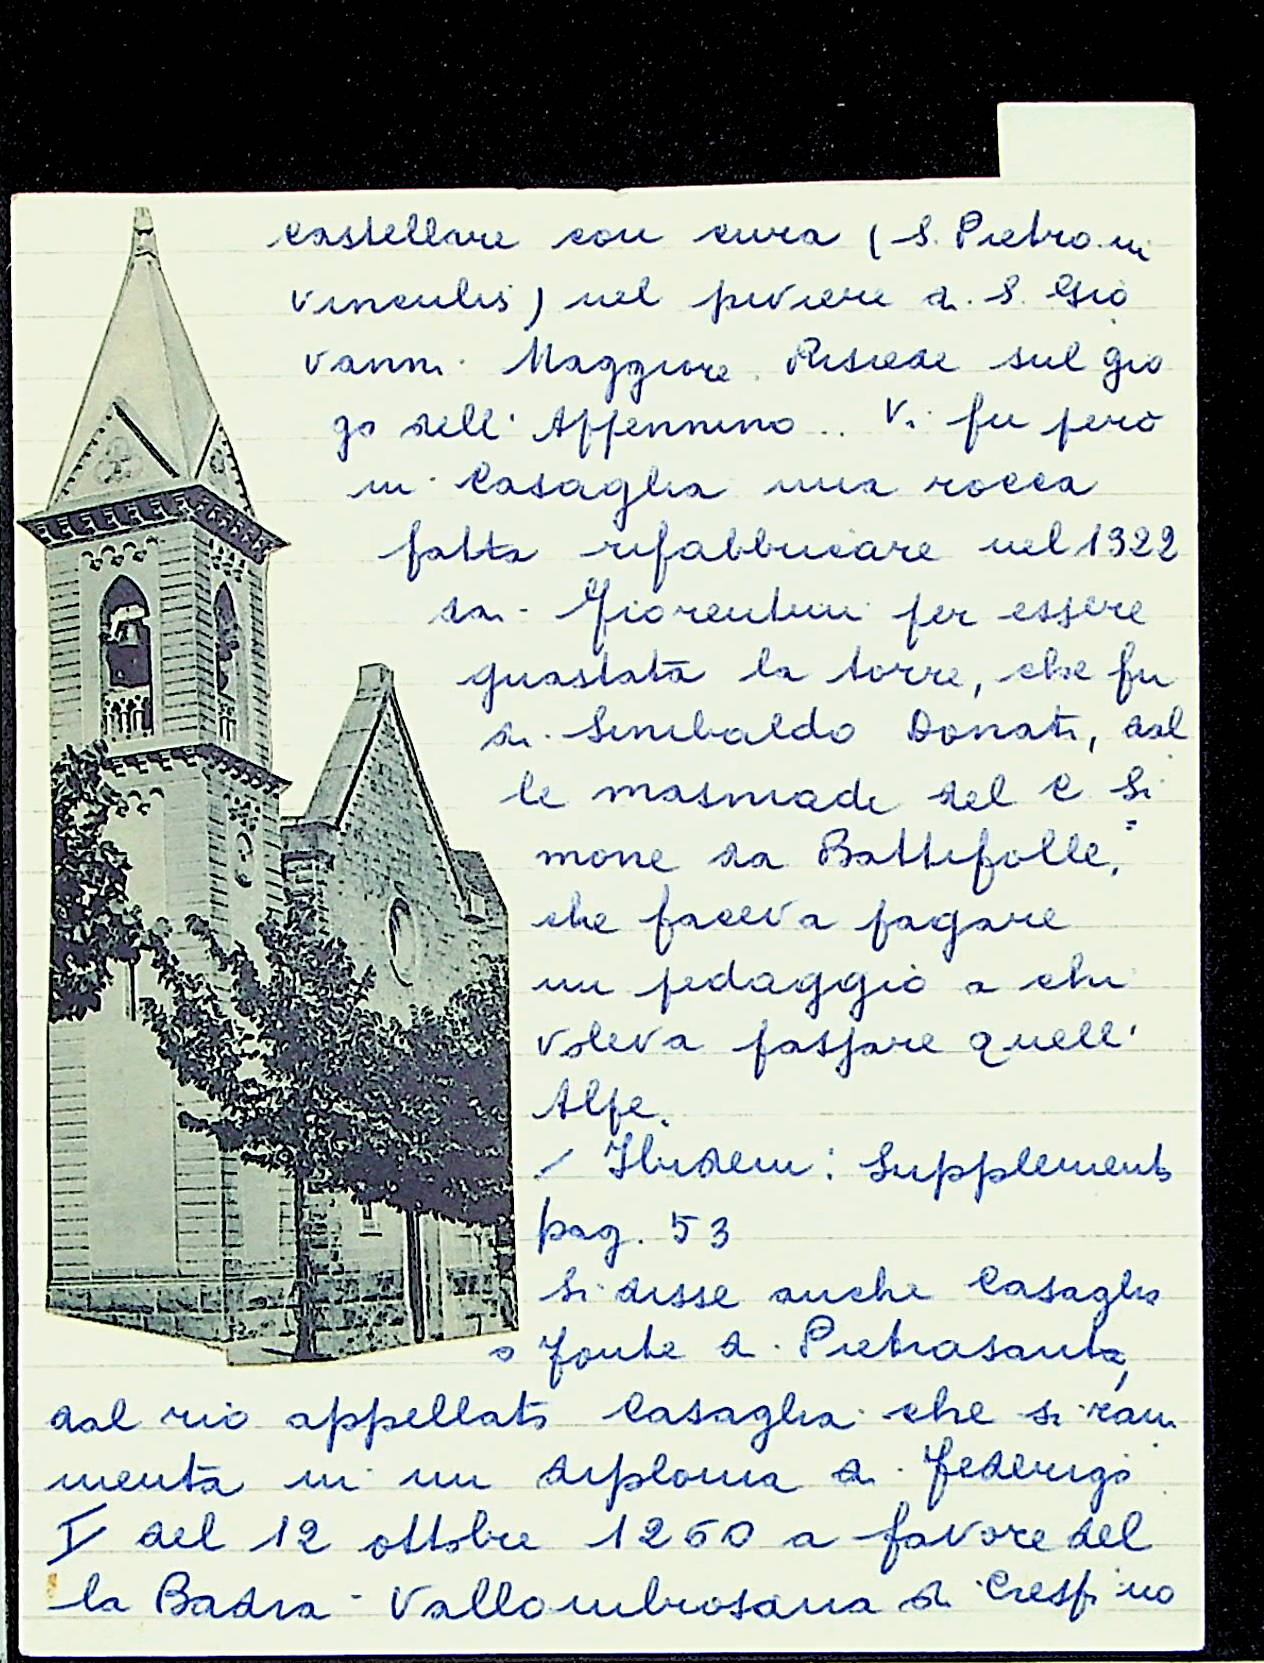 castellare con cura (S. Pietro in
vinculis) nel piviere di S. Gio
vanni Maggiore. Risiede sul gio
go dell'Appennino.. Vi fu però
in Casaglia una rocca
fatta rifabbricare nel 1322
dai Fiorentini per essere
guastata la torre, che fu
di Sinibaldo Donati, dal
le masnade del C Si
mone da Battifolle,
che faceva pagare
un pedaggio a chi
voleva passare quell'
Alpe.
/ Ibidem: Supplemento
pag. 53
Si disse anche Casaglia
o Fonte di Pietrasanta,
dal rio appellato Casaglia che si ram
menta in un diploma di Federigo
I del 12 ottobre 1260 a favore del
la Badia Vallombrosana di Crespino